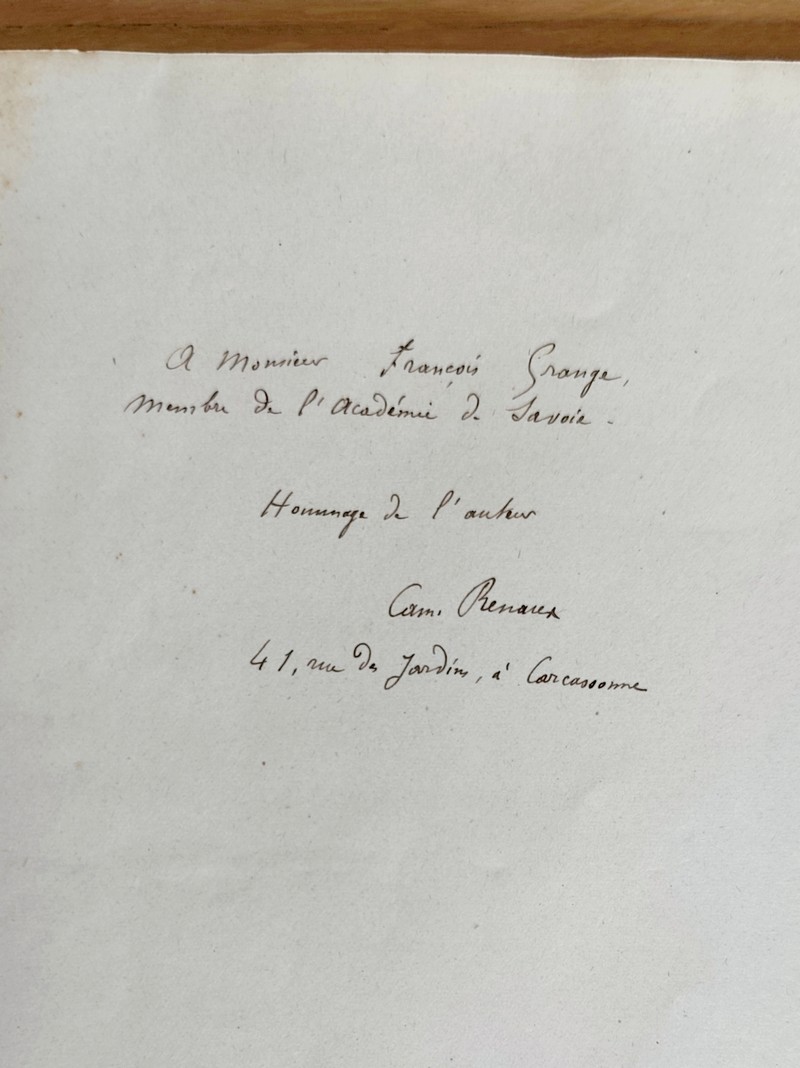 A Monsieur François Grange,
Membre de l'Académie de Savoie.
Hommage de l'auteur
Cam. Renaux
41, rue des Jardins, à Carcassonne